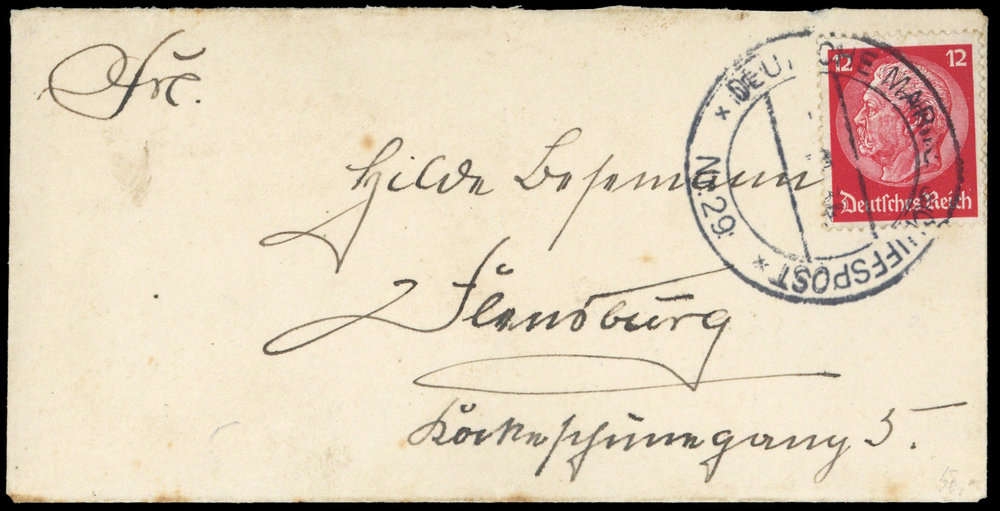 Frl.
Hilde Besemann
Flensburg
5.
12 12
Deutsches Reich
* DEUTSCHE MARINE-SCHIFFSPOST *
No. 29.